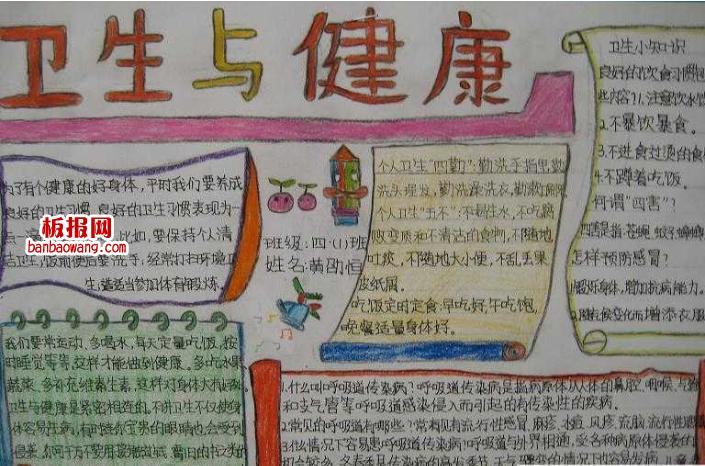 卫生与健康
卫生小知识
良好的饮食习惯包
些内容?1.注意饮水饮
2.不暴饮暴食。
3.不进食过烫的食
4.不蹲着吃饭。
何谓“四害”?
四害是指苍蝇、蚊子、蟑螂
怎样预防感冒?
1.锻炼身体,增加抗病能力。
2.随气候变化而增添衣服
为了有个健康的好身体,平时我们要养成
良好的卫生习惯,良好的卫生习惯表现为
如,要保持个人清
洁卫生,饭前便后要洗手,经常打扫环境卫
生,适当参加体育锻炼。
板报网
banbaowang.com
班级:四·(1)班
姓名:黄劭恒
个人卫生“四勤”:勤洗手指甲,勤
洗头理发,勤洗澡洗衣,勤
个人卫生“五不”:不喝生水,不吃腐
败变质和不清洁的食物,不随地
吐痰,不随地大小便,不乱丢果
皮纸屑。
吃饭定时定食:早吃好,午吃饱,
晚餐适量身体好。
我们要常运动,多喝水,每天定量吃饭,按
时睡觉等等,这样才能做到健康。多吃水果
蔬菜,多补充维生素,这样对身体大有
卫生与健康是紧密相连的,不讲卫生不仅使身
体容易生病,有时连你宝贵的眼睛也会受到
侵袭,你可千万不要用
1.什么叫呼吸道传染病?呼吸道传染病是指病原体从人体的鼻腔、咽喉、气管
和支气管等呼吸道感染侵入而引起的有传染性的疾病。
2.常见的呼吸道有哪些?常见有流行性感冒,麻疹,水痘,风疹,流脑,流行性腮
3.什么情况下容易患呼吸道传染病?呼吸道与外界相通,受各种病原体侵袭的